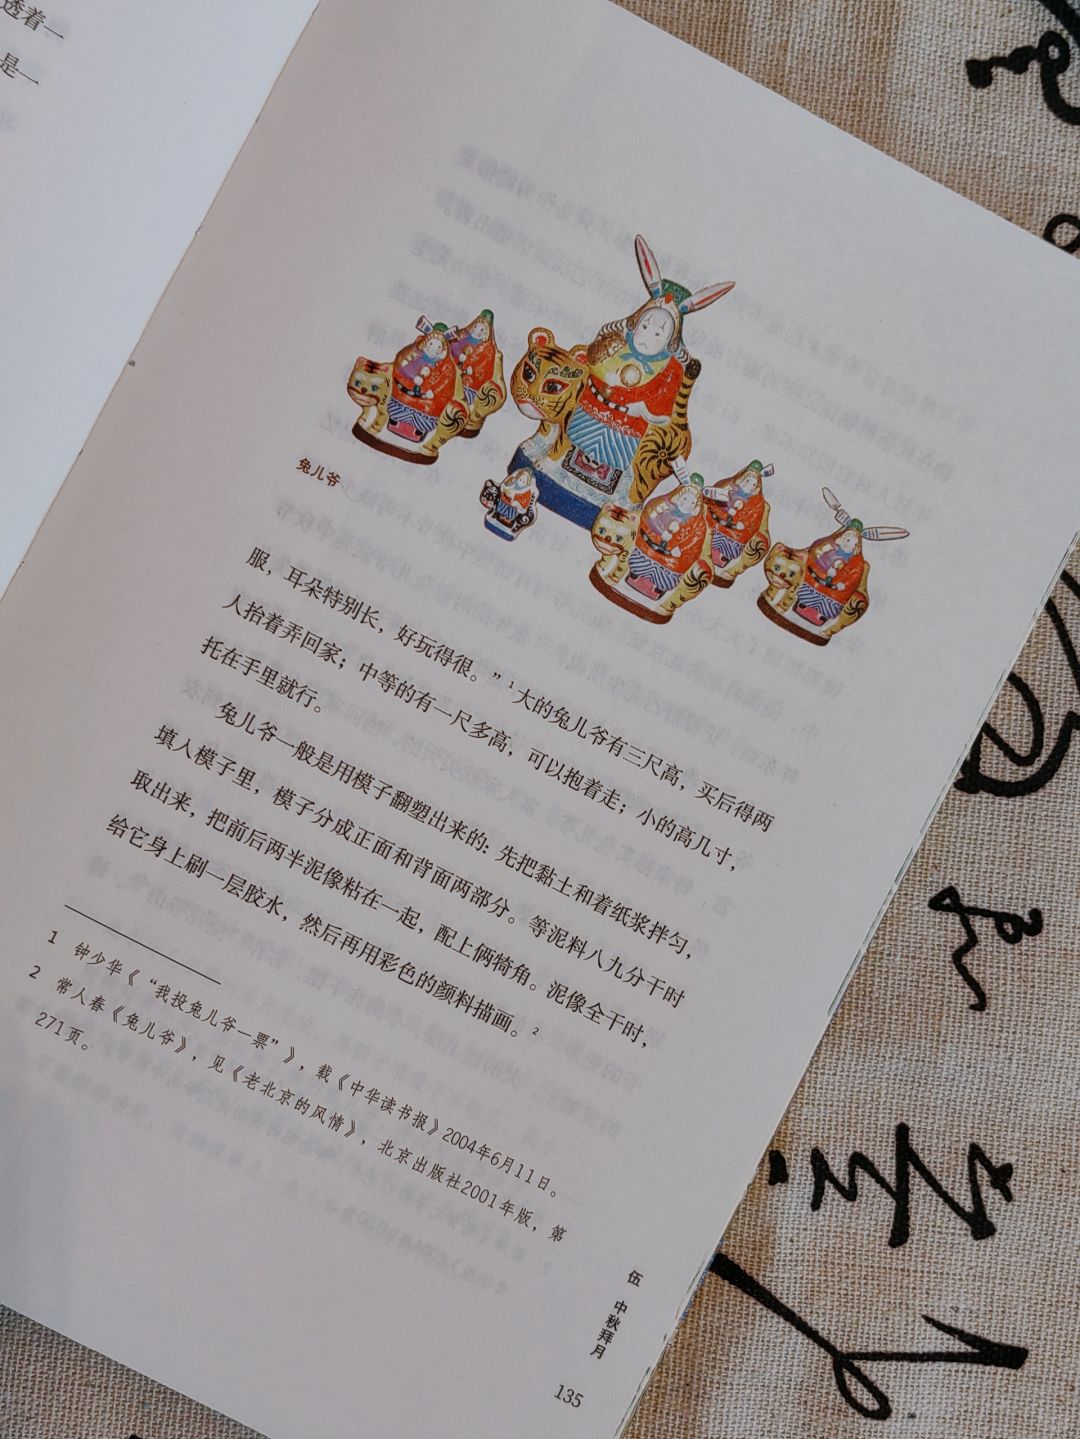 透着一
是一
兔儿爷
服，耳朵特别长，好玩得很。”1大的兔儿爷有三尺高，买后得两
人抬着弄回家；中等的有一尺多高，可以抱着走；小的高几寸，
托在手里就行。
兔儿爷一般是用模子翻塑出来的：先把黏土和着纸浆拌匀，
填入模子里，模子分成正面和背面两部分。等泥料八九分干时
取出来，把前后两半泥像粘在一起，配上俩犄角。泥像全干时，
给它身上刷一层胶水，然后再用彩色的颜料描画。2
1 钟少华《“我投兔儿爷一票”》，载《中华读书报》2004年6月11日。
2 常人春《兔儿爷》，见《老北京的风情》，北京出版社2001年版，第
271页。
伍 中秋拜月
135